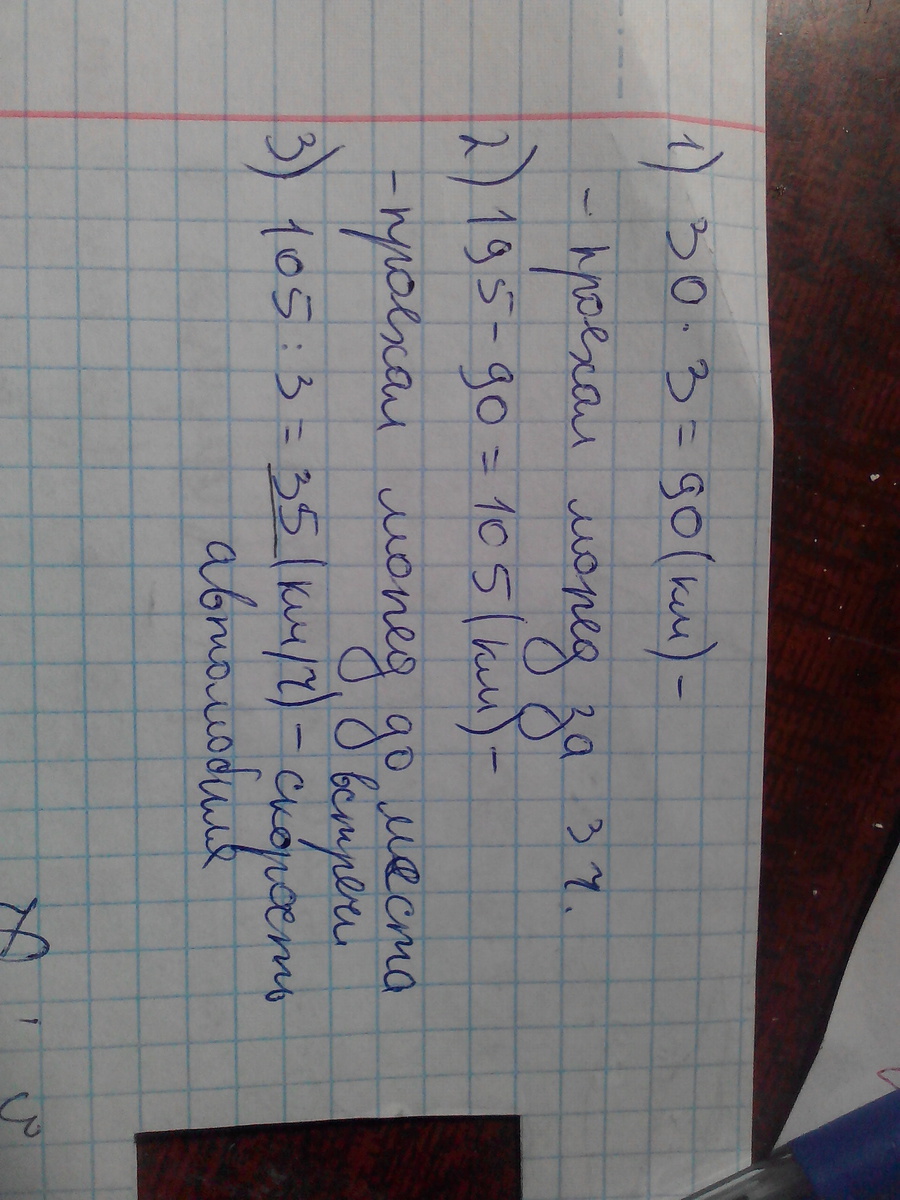 1) 30 · 3 = 90 (км) -
- проехал мопед за 3 ч.
2) 195 - 90 = 105 (км) -
- проехал мопед до места
встречи
3) 105 : 3 = 35 (км/ч) - скорость
автомобиля